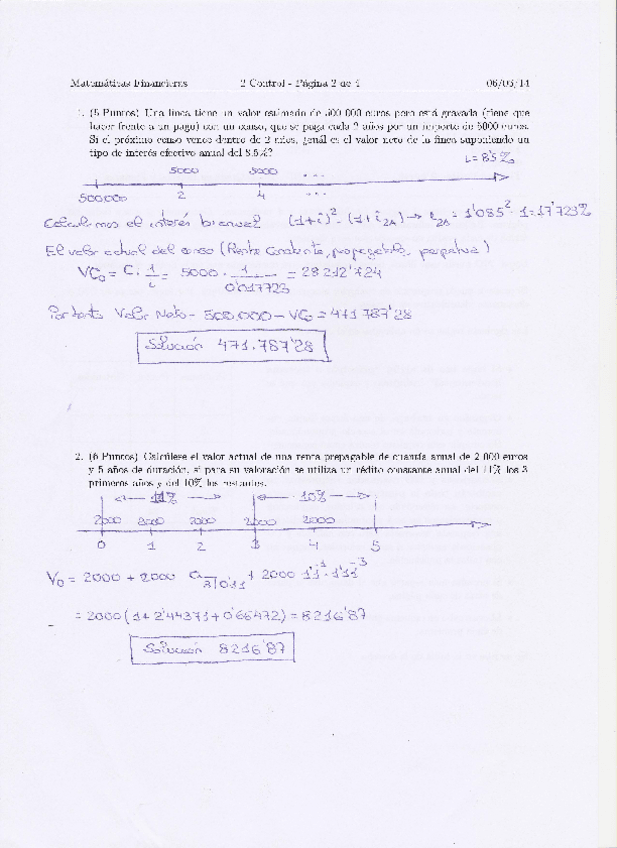 Matemáticas Financieras 2 Control - Página 2 de 4 06/03/14
1. (5 Puntos) Una finca tiene un valor estimado de 500 000 euros pero está gravada (tiene que
hacer frente a un pago) con un censo, que se paga cada 2 años por un importe de 5000 euros.
Si el próximo censo vence dentro de 2 años, ¿cuál es el valor neto de la finca suponiendo un
tipo de interés efectivo anual del 8.5%?
i=8'5%
5000 5000 ...
500.000 2 4 ...
Calculamos el interés bianual (1+i)² = (1+i₂ₐ) → i₂ₐ = 1'085² - 1 = 17'723%
El valor actual del censo (Renta Constante, pospagable, perpetua)
VC₀ = C · 1/i = 5000 · 1/0'017723 = 28212'724
Por tanto Valor Neto = 500.000 - VC₀ = 471787'28
Solución 471.787'28
2. (6 Puntos) Calcúlese el valor actual de una renta prepagable de cuantía anual de 2 000 euros
y 5 años de duración, si para su valoración se utiliza un rédito constante anual del 11% los 3
primeros años y del 10% los restantes.
11% 10%
2000 2000 2000 2000 2000
0 1 2 3 4 5
V₀ = 2000 + 2000 a 3|0'11 + 2000 1'1⁻¹ · 1'11⁻³
= 2000(1+2'44371+0'66472) = 8216'87
Solución 8216'87